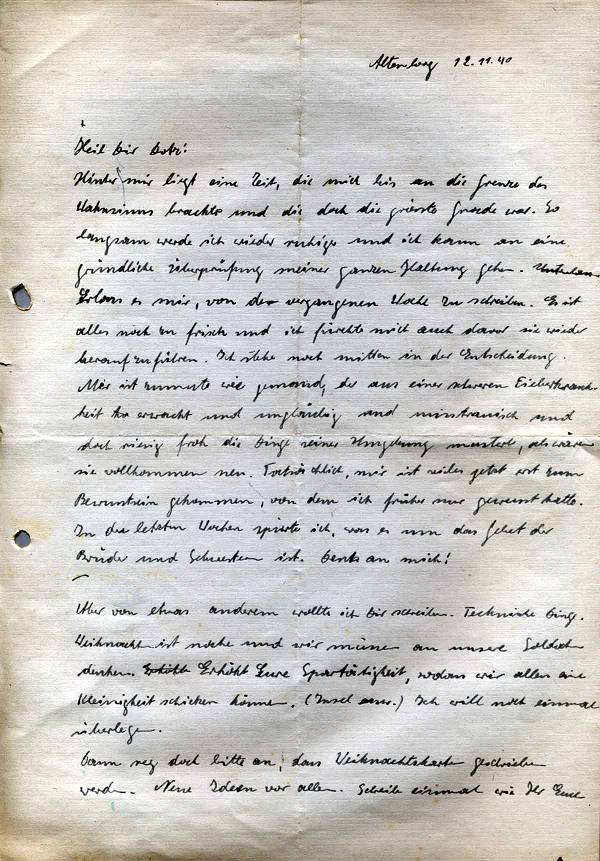 Altenburg 12.11.40
Heil Dir Bobi!
Hinter mir liegt eine Zeit, die mich bis an die Grenze des
Wahnsinns brachte und die doch die grösste Gnade war. So
langsam werde ich wieder ruhiger und ich kann an eine
gründliche Überprüfung meiner ganzen Haltung gehen.
Erlass es mir, von der vergangenen Woche zu schreiben. Es ist
alles noch zu frisch und ich fürchte mich auch davor sie wieder
heraufzuführen. Ich stehe noch mitten in der Entscheidung.
Mir ist zumute wie jemand, der aus einer schweren Fieberkrank-
heit erwacht und ungläubig und misstrauisch und
doch riesig froh die Dinge seiner Umgebung mustert, als wären
sie vollkommen neu. Tatsächlich, mir ist vieles jetzt erst zum
Bewusstsein gekommen, von dem ich früher nur gewusst hatte.
In den letzten Wochen spürte ich, was es um das Gebet der
Brüder und Schwestern ist. Denk an mich!
Aber von etwas anderem wollte ich Dir schreiben. Technische Dinge.
Weihnacht ist nahe und wir müssen an unsere Soldaten
denken. Erhöht Eure Spartätigkeit, sodass wir allen eine
Kleinigkeit schicken können. (Insel usw.) Ich will noch einmal
überlegen.
Dann reg doch bitte an, dass Weihnachtskarten geschrieben
werden. Neue Ideen vor allem. Schreibe einmal wie Ihr Euch